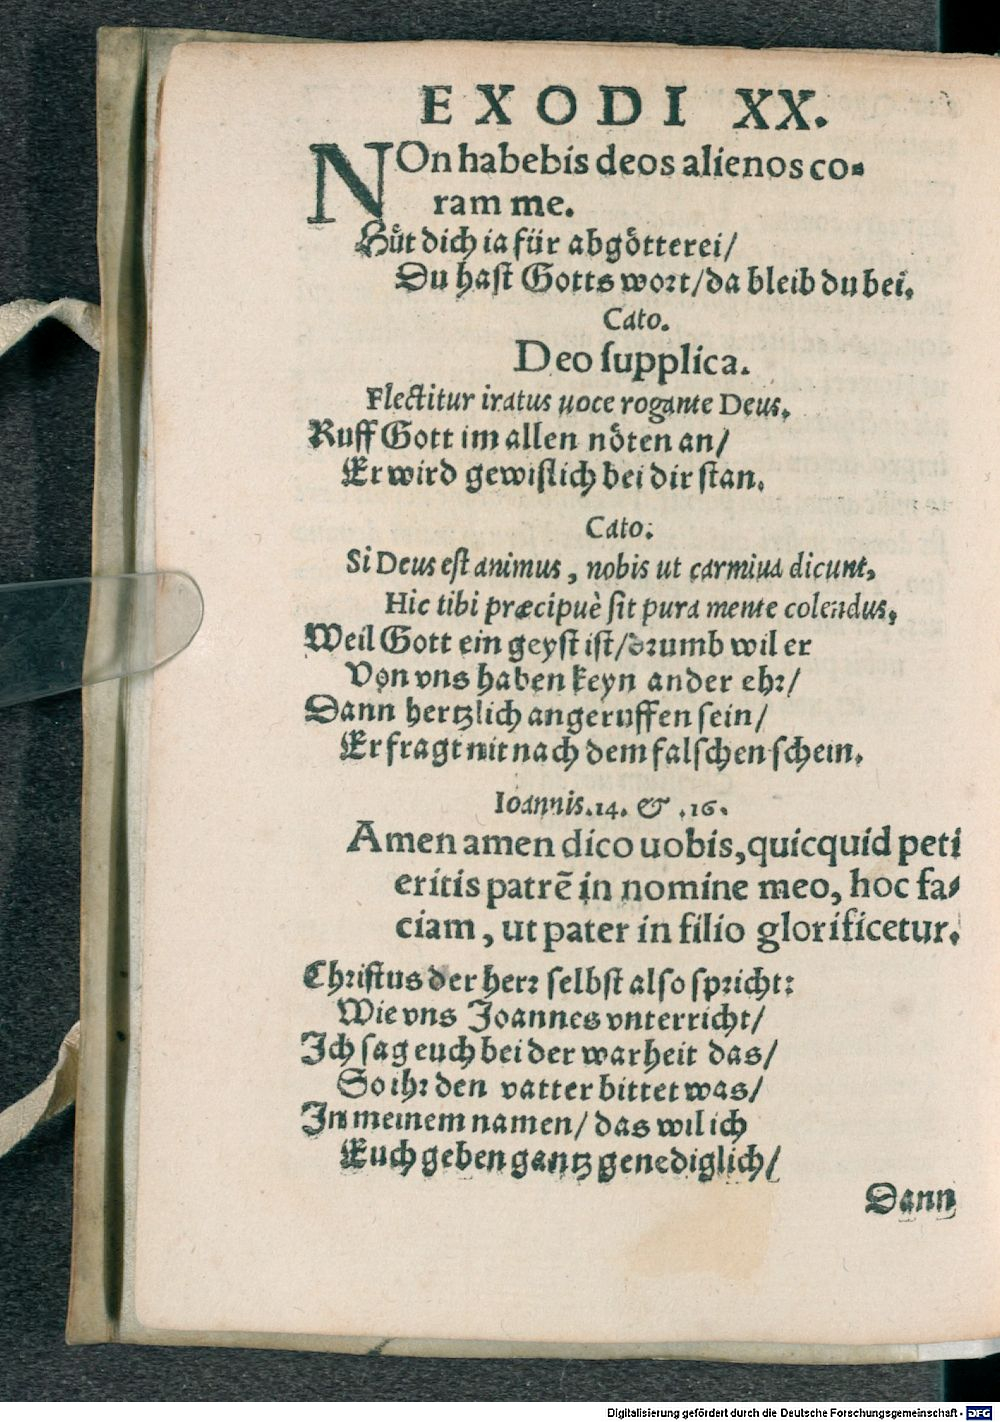 EXODI XX.
NOn habebis deos alienos co-
ram me.
Huͤt dich ia für abgoͤtterei/
Du haſt Gotts wort/da bleib du bei.
Cato.
Deo ſupplica.
Flectitur iratus uoce rogante Deus.
Ruff Gott im allen noͤten an/
Er wird gewißlich bei dir ſtan.
Cato.
Si Deus eſt animus, nobis ut carmiua dicunt,
Hic tibi præcipuè ſit pura mente colendus,
Weil Gott ein geyſt iſt/drumb wil er
Von vns haben keyn ander ehr/
Dann hertzlich angeruffen ſein/
Er fragt nit nach dem falſchen ſchein.
Ioannis.14. & .16.
Amen amen dico uobis,quicquid peti
eritis patrē in nomine meo, hoc fa-
ciam, ut pater in filio glorificetur.
Chriſtus der herr ſelbſt alſo ſpricht:
Wie vns Joannes vnterricht/
Ich ſag euch bei der warheit das/
So ihr den vatter bittet was/
In meinem namen/ das wil ich
Euch geben gantz genediglich/
Dann
Digitalisierung gefördert durch die Deutsche Forschungsgemeinschaft - DFG